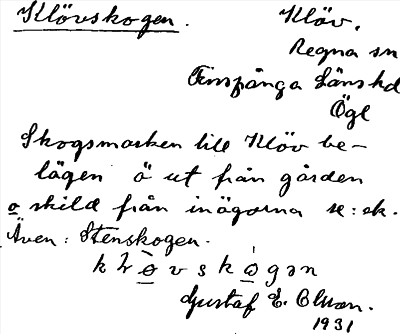 Klövskogen. Klöv.
Regna sn
Finspånga länshd
Ögl
Skogsmarken till Klöv be-
lägen ö ut från gården
o skild från inägorna se: ek.
Även: Stenskogen.
Gustaf E. Olsson.
1931